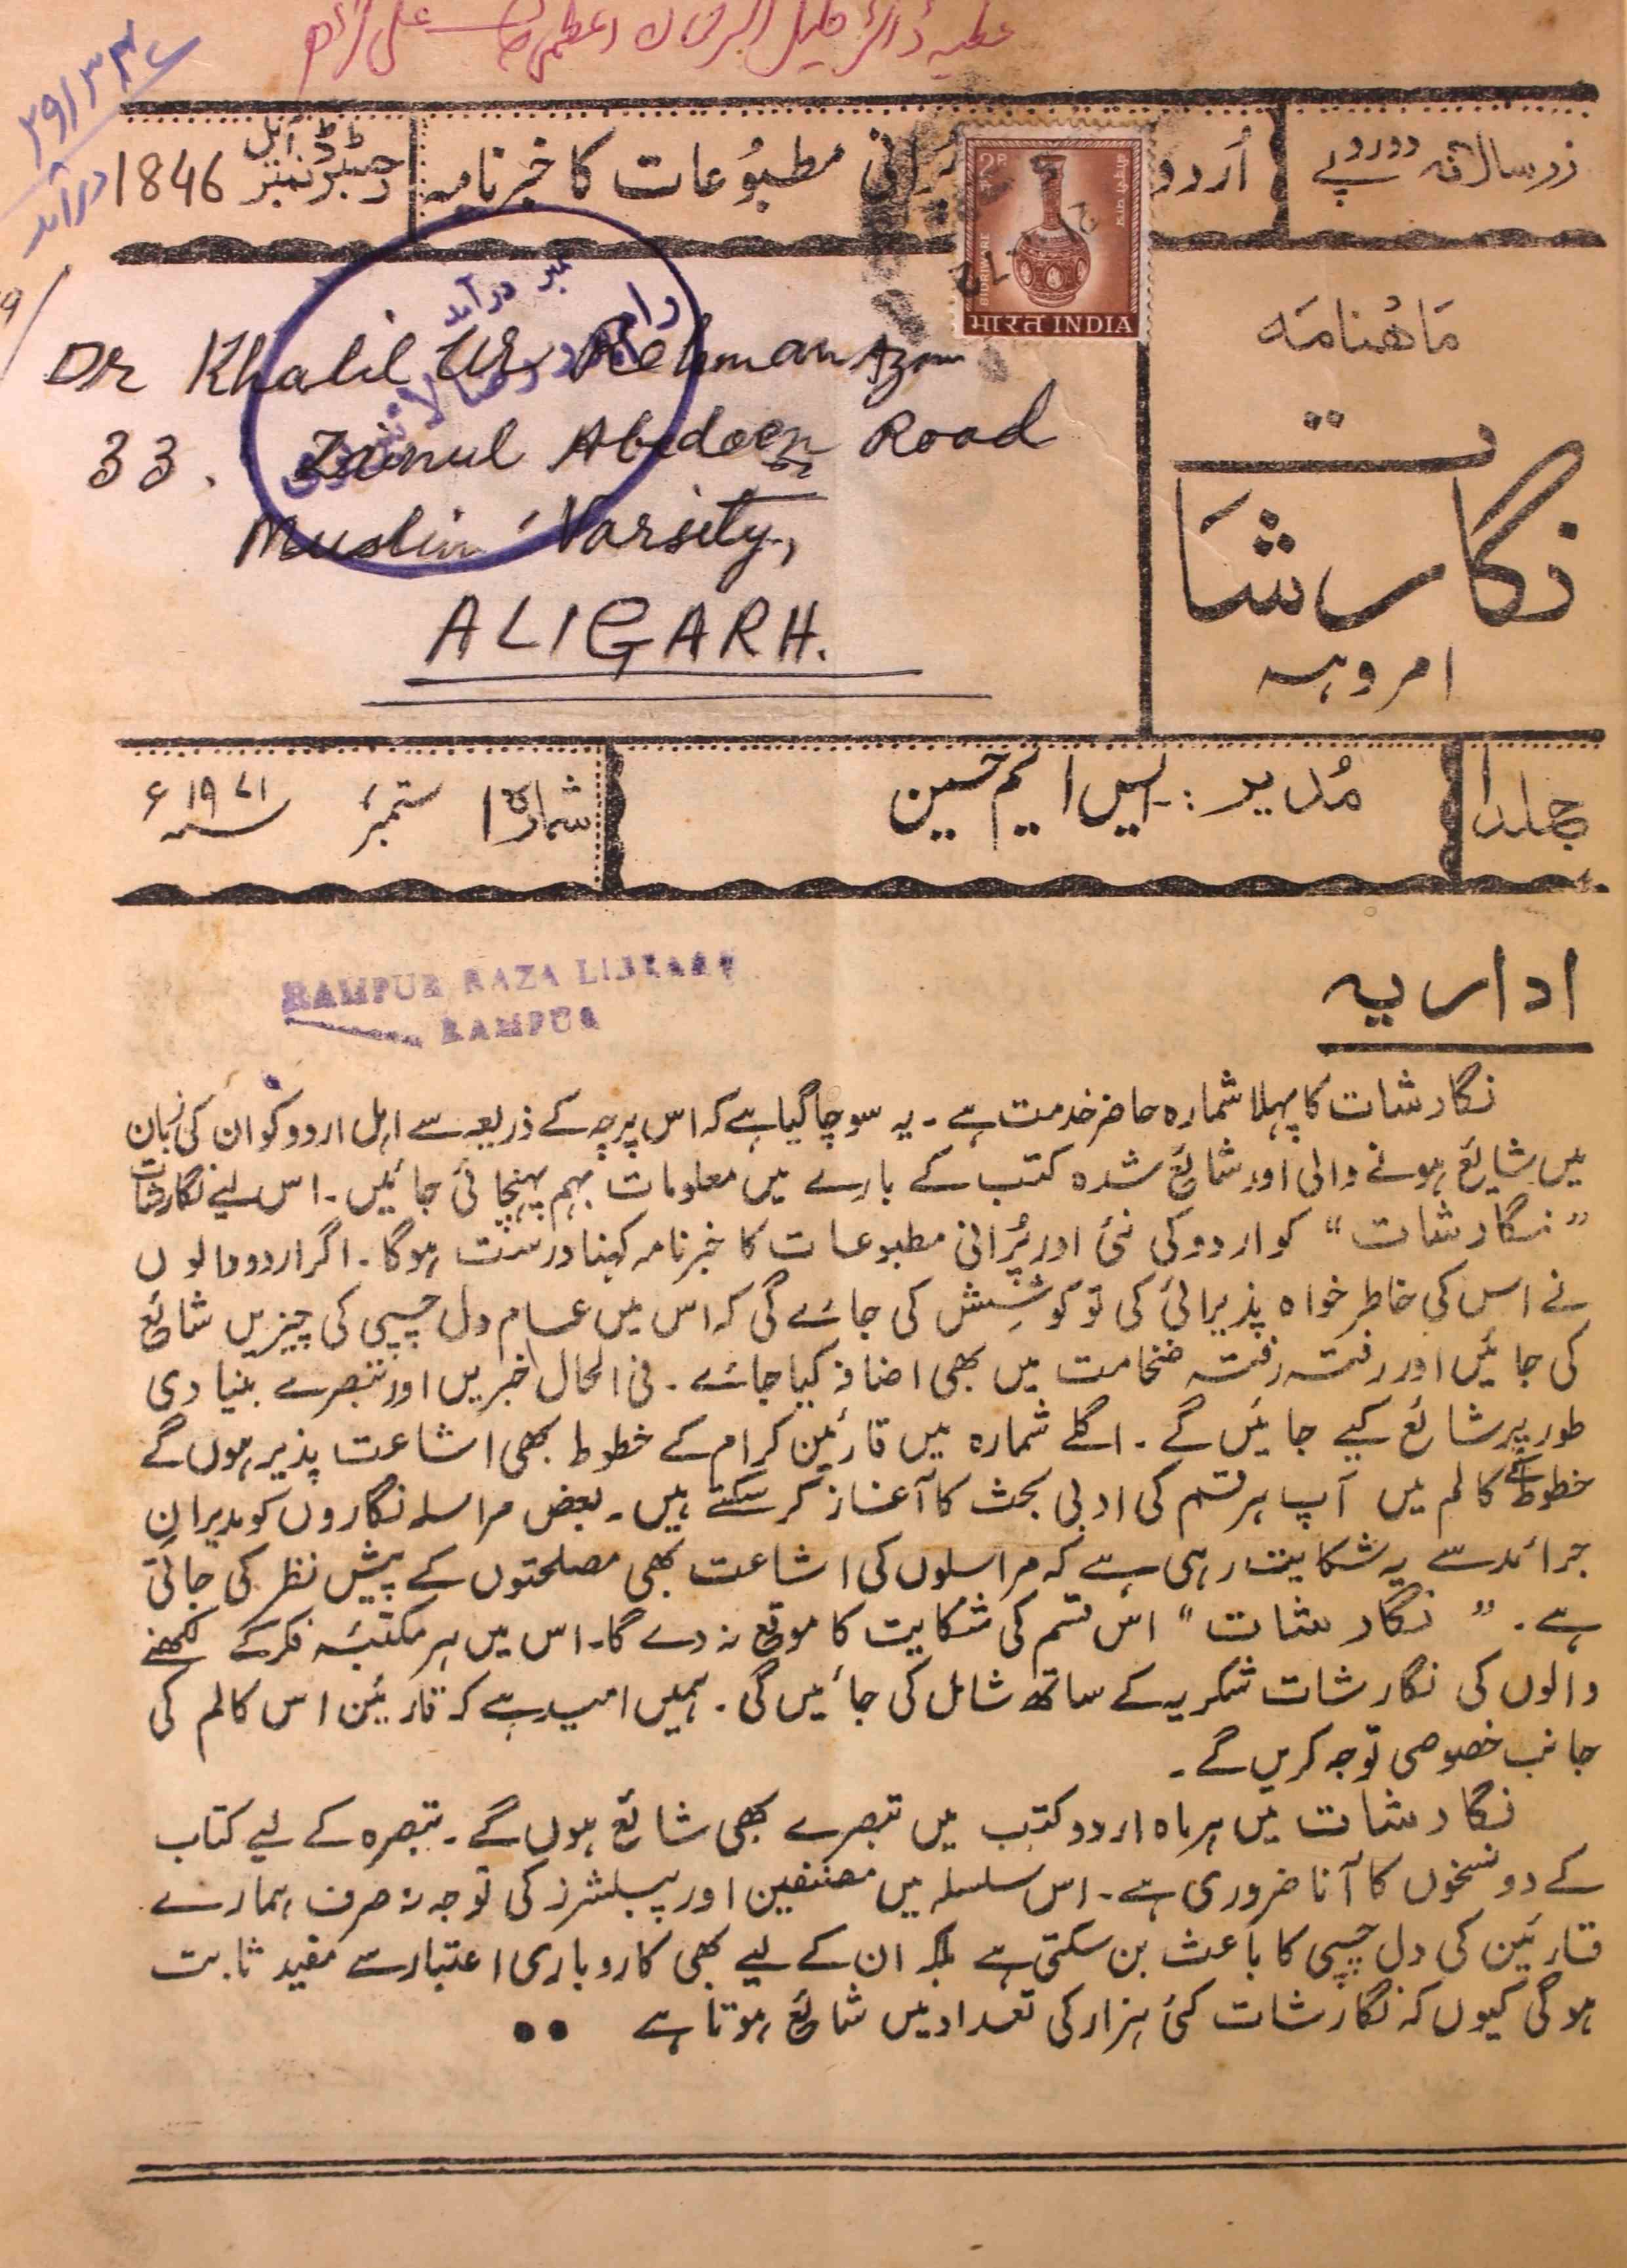 عطیہ ڈاکٹر خلیل الرحمان اعظمی صاحب علی گڑھ
زر سالانہ دو روپے
اُردو پُرانی مطبُوعات کا خبرنامہ
رجسٹرڈ ایل نمبر 1846
درآمد
2P
BIDRIWARE
भारत INDIA
نمبر درآمد
Dr Khalil Ur Rehman Azmi
33. Zainul Abedeen Road
Muslim Varsity,
ALIGARH.
مَاهُنامَہ
نگارشات
امروہہ
جلد ۱
مُدیر :- ایس ایم حسین
شمارہ ۱ ستمبر ۱۹۷۱ء
RAMPUR RAZA LIBRARY
RAMPUR
اداریہ
نگارشات کا پہلا شمارہ حاضر خدمت ہے ۔ یہ سوچا گیا ہے کہ اس پرچہ کے ذریعہ سے اہل اردو کو ان کی زبان
میں شایع ہونے والی اور شائع شدہ کتب کے بارے میں معلومات بہم پہنچائی جائیں ۔ اس لیے نگارشات
”نگارشات“ کو اردو کی نئی اور پُرانی مطبوعات کا خبرنامہ کہنا درست ہوگا ۔ اگر اردو والوں
نے اس کی خاطر خواہ پذیرائی کی تو کوشِش کی جائے گی کہ اس میں عام دل چسپی کی چیزیں شائع
کی جائیں اور رفتہ رفتہ ضخامت میں بھی اضافہ کیا جائے ۔ فی الحال خبریں اور تبصرے بنیادی
طور پر شائع کیے جائیں گے ۔ اگلے شمارہ میں قارئین کرام کے خطوط بھی اشاعت پذیر ہوں گے
خطوط کے کالم میں آپ ہر قسم کی ادبی بحث کا آغاز کر سکتے ہیں ۔ بعض مراسلہ نگاروں کو مدیران
جرائد سے یہ شکایت رہی ہے کہ مراسلوں کی اشاعت بھی مصلحتوں کے پیش نظر کی جاتی
ہے . ”نگارشات“ اس قسم کی شکایت کا موقع نہ دے گا ۔ اس میں ہر مکتبۂ فکر کے لکھنے
والوں کی نگارشات شکریہ کے ساتھ شامل کی جائیں گی ۔ ہمیں امید ہے کہ قارئین اس کالم کی
جانب خصوصی توجہ کریں گے ۔
نگارشات میں ہر ماہ اردو کتب میں تبصرے بھی شایع ہوں گے ۔ تبصرہ کے لیے کتاب
کے دو نسخوں کا آنا ضروری ہے ۔ اس سلسلہ میں مصنفین اور پبلشرز کی توجہ نہ صرف ہمارے
قارئین کی دل چسپی کا باعث بن سکتی ہے بلکہ ان کے لیے بھی کاروباری اعتبار سے مفید ثابت
ہوگی کیوں کہ نگارشات کئی ہزار کی تعداد میں شائع ہوتا ہے ••